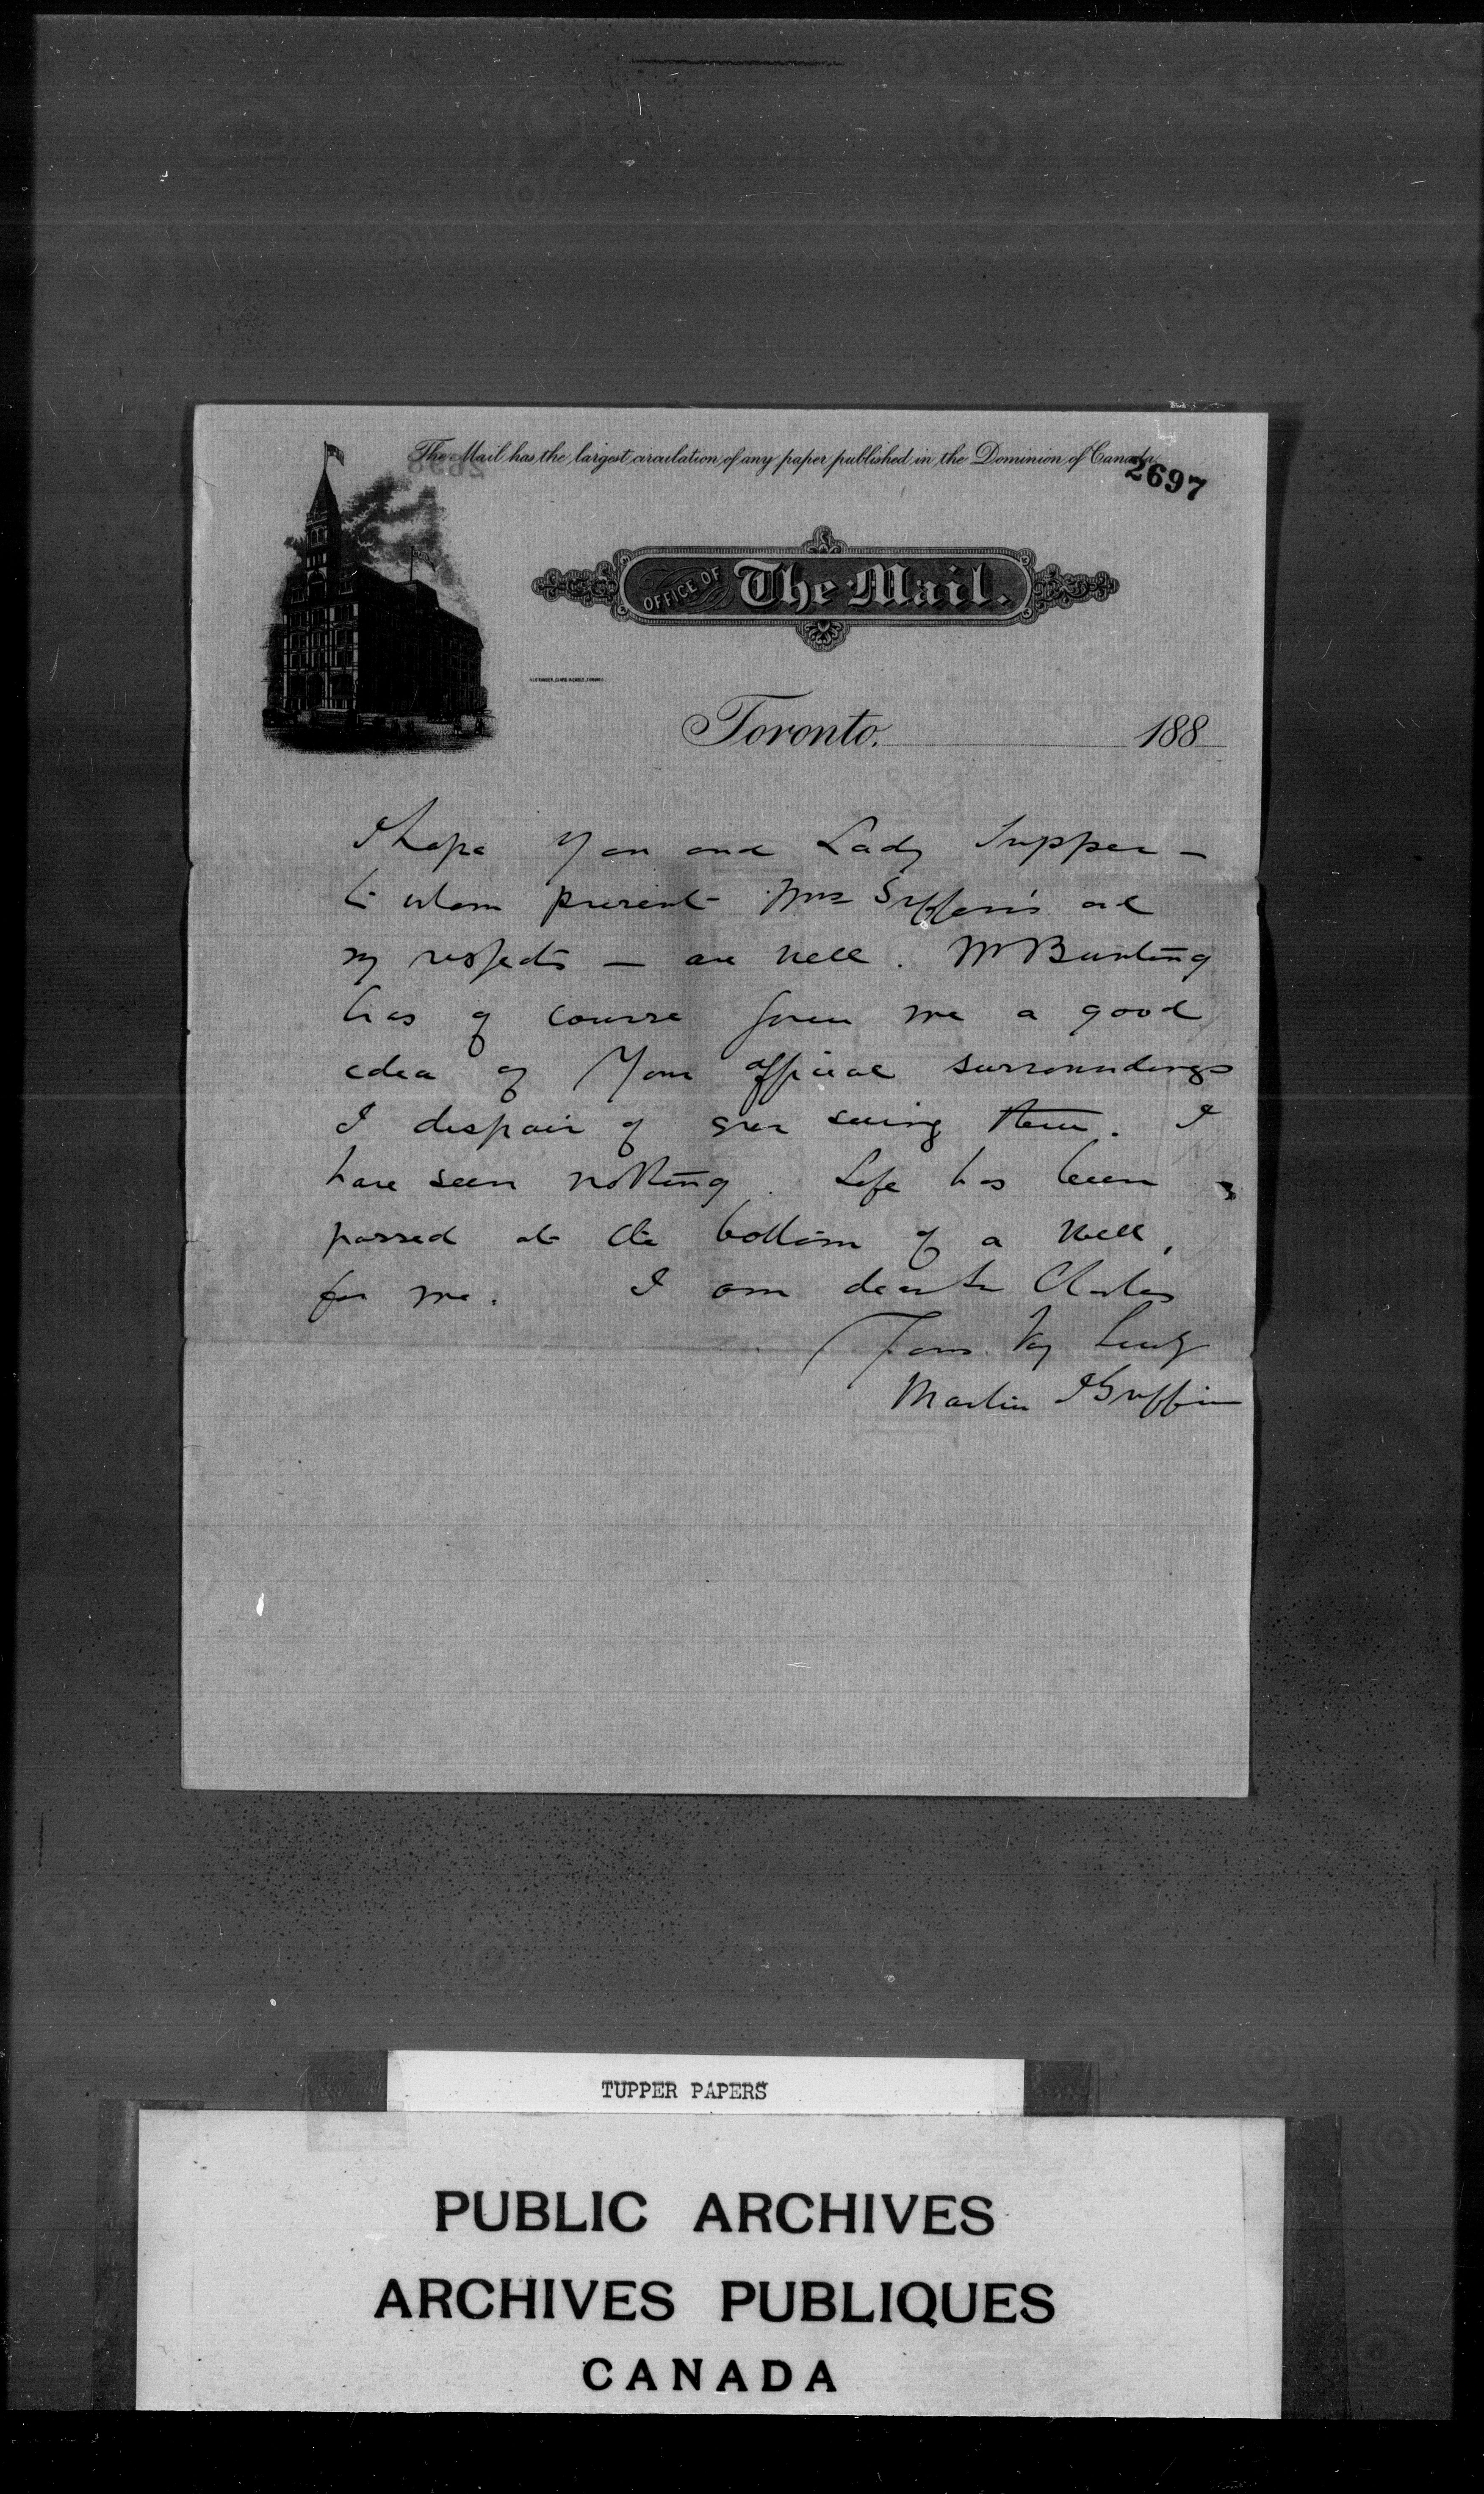 The Mail has the largest circulation of any paper published in the Dominion of Canada.
2697
OFFICE OF The Mail.
Toronto, 188
I hope you and Lady Tupper —
to whom present Mrs Griffin's and
my respects — are well. Mr Bunting
has of course given me a good
idea of your official surroundings
I despair of ever seeing them. I
have seen nothing. Life has been
passed at the bottom of a well,
for me. I am dear Sir Charles
Yours very truly
Martin J Griffin
TUPPER PAPERS
PUBLIC ARCHIVES
ARCHIVES PUBLIQUES
CANADA